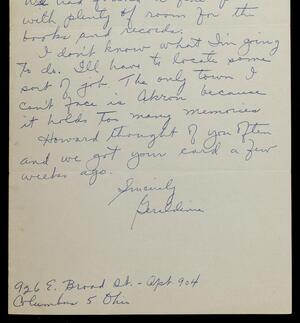 with plenty of room for the
books and records.
I don't know what I'm going
to do. I'll have to locate some
sort of job. The only town I
can't face is Akron because
it holds too many memories
Howard thought of you often
and we got your card a few
weeks ago.
Sincerely
Geraldine
926 E. Broad St. - Apt 904
Columbus 5 Ohio